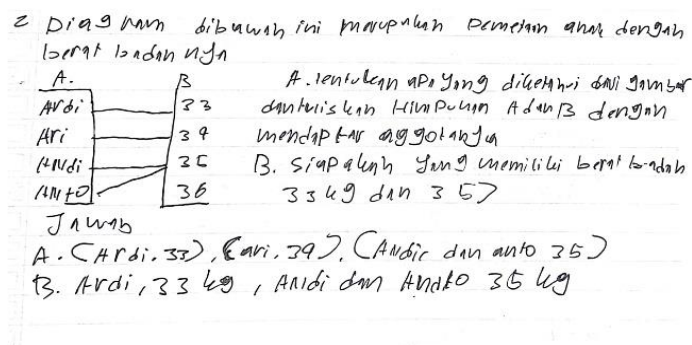 2 Diagram dibawah ini merupakan Pemetaan anak dengan
berat badan nya
A. B
Ardi 33
Ari 34
Andi 35
Anto 36
A. tentukan apa yang diketahui dari gambar
dan tuliskan Himpunan A dan B dengan
mendaptar aggotanya
B. Siapakah yang memiliki berat badan
33 kg dan 35?
Jawab
A. (Ardi. 33), (ari. 39), (Andic dan anto 35)
B. Ardi, 33 kg, Andi dan Andto 35 kg